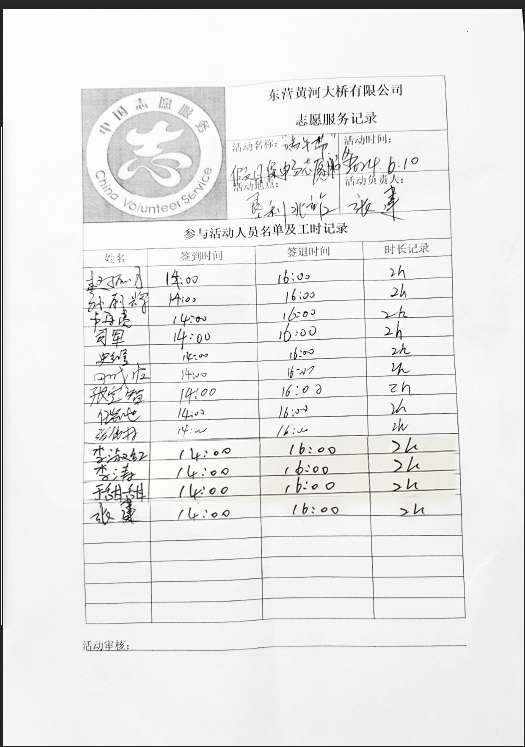 东营黄河大桥有限公司
志愿服务记录
中国志愿服务
志
China Volunteer Service
活动名称：“端午节”
假日保畅志愿服务
活动时间：
2024.6.10
活动地点：
垦利北
活动负责人：
张建
参与活动人员名单及工时记录
姓名 签到时间 签退时间 时长记录
14:00 16:00 2h
14:00 16:00 2h
14:00 16:00 2h
司军 14:00 16:00 2h
14:00 16:00 2h
14:00 16:00 2h
14:00 16:00 2h
14:00 16:00 2h
14:00 16:00 2h
李淑红 14:00 16:00 2h
李涛 14:00 16:00 2h
于甜甜 14:00 16:00 2h
张建 14:00 16:00 2h
活动审核：